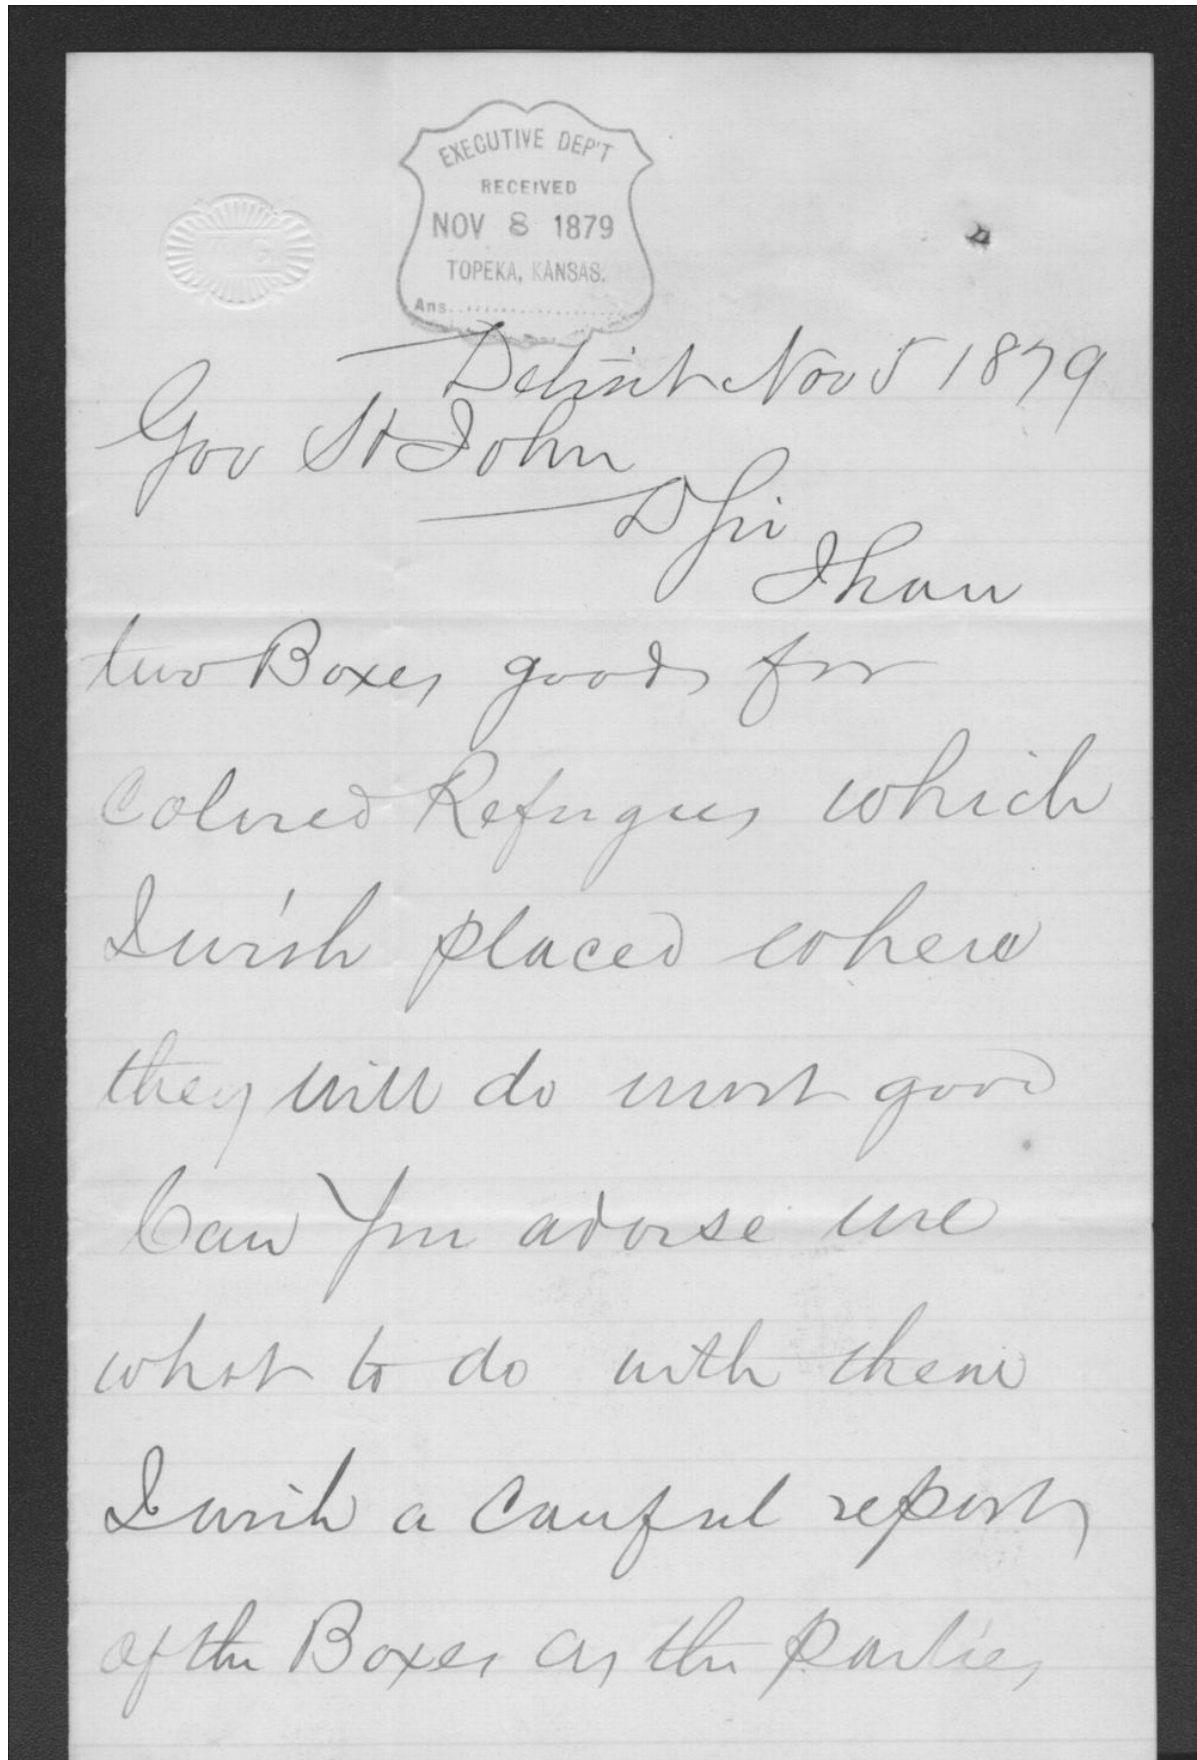 EXECUTIVE DEP'T
RECEIVED
NOV 8 1879
TOPEKA, KANSAS.
Ans.
Detroit Nov 5 1879
Gov St John
D Sir
I have
two Boxes goods for
Colored Refugees which
I wish placed where
they will do most good
Can You advise me
what to do with them
I wish a careful report
of the Boxes as the parties